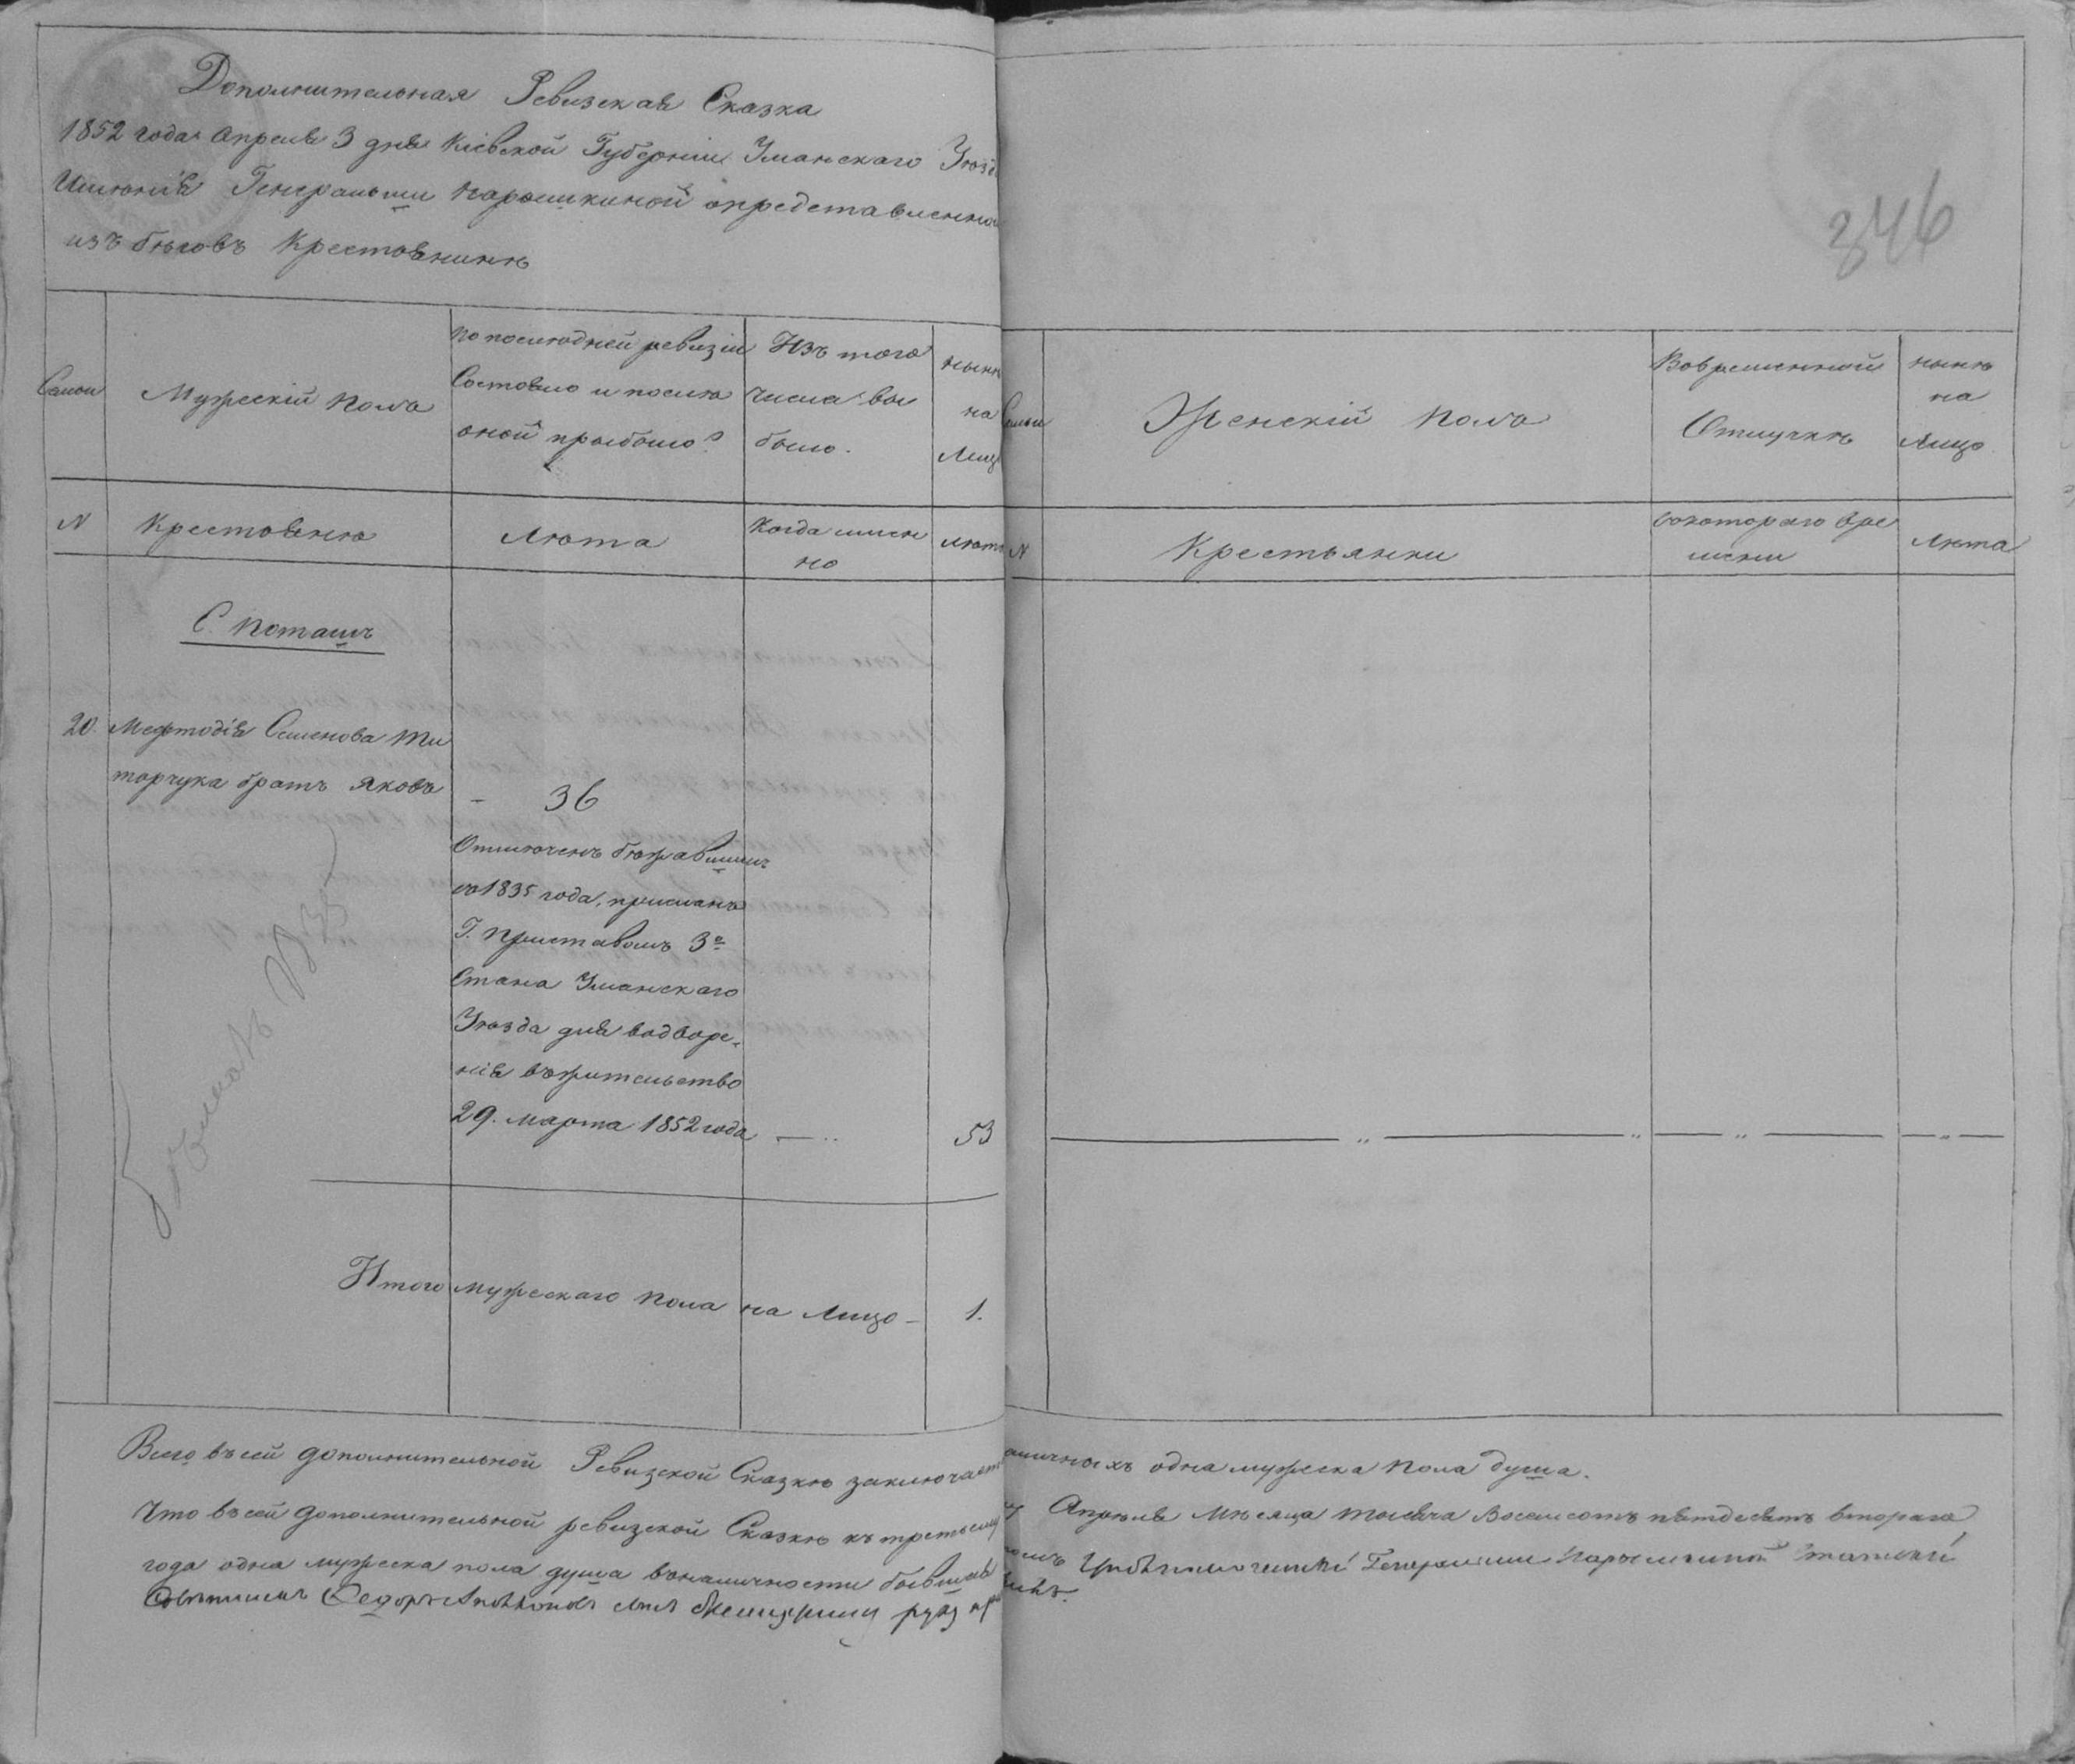 Дополнительная Ревизская Сказка
1852 года Апреля 3 дня Кіевской Губерніи Уманскаго Уѣзда
Имѣнія Генеральши Нарышкиной опредставленномъ
изъ бѣговъ Крестьянинѣ
346
Семьи
Мужескій полъ
По послѣдней ревизіи
Состояло и послѣ
оной прыбыло?
Изъ того
числа вы
было.
Нынѣ
на
Лицо
Семьи
Женскій полъ
Вовременной
Отлучкѣ
Нынѣ
на
Лицо
N
Крестьянѣ
Лѣта
Когда имен
но
лѣта
N
Крестьянки
Сокотораго вре
мени
Лѣта
С. Поташъ
20. Мефтодія Семенова Ти
торчука братъ Яковъ
- 36
Отмѣченъ бѣжавшимъ
въ 1835 года, присланъ
Г. Приставомъ 3го
Стана Уманскаго
Уѣзда для водворе-
нія въжительство
29. марта 1852 года
53
Итого мужескаго пола на Лицо - 1.
Всего въ сей дополнительной Ревизской Сказкѣ заключается наличныхъ одна мужеска пола душа.
Что въ сей дополнительной ревизской Сказкѣ къ третьему Апрѣля Мѣсяца тысяча восемсотъ пятдесятъ второго
года одна мужеска пола душа въналичности бывшая
Генеральши Нарышкиной
Федоръ руку